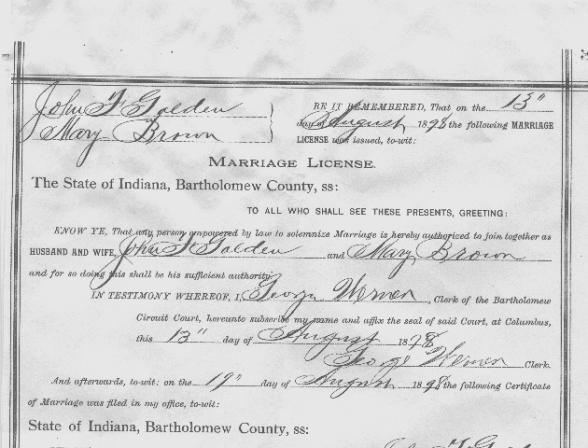 John F Golden
Mary Brown
BE IT REMEMBERED, That on the 13"
day of August 1898 the following MARRIAGE
LICENSE was issued, to-wit:
MARRIAGE LICENSE.
The State of Indiana, Bartholomew County, ss:
TO ALL WHO SHALL SEE THESE PRESENTS, GREETING:
KNOW YE, That any person empowered by law to solemnize Marriage is hereby authorized to join together as
HUSBAND AND WIFE, John F Golden and Mary Brown
and for so doing this shall be his sufficient authority.
IN TESTIMONY WHEREOF, I, George Werner, Clerk of the Bartholomew
Circuit Court, hereunto subscribe my name and affix the seal of said Court, at Columbus,
this 13" day of August 1898
George Werner Clerk.
And afterwards, to-wit: on the 19" day of August 1898 the following Certificate
of Marriage was filed in my office, to-wit:
State of Indiana, Bartholomew County, ss: